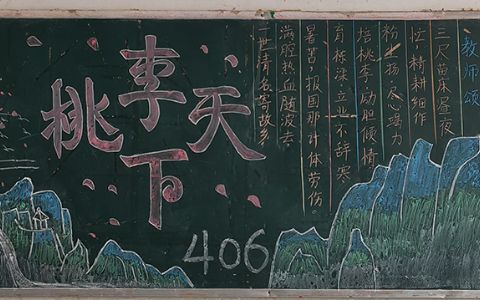 桃李天下
教师颂
三尺苗床昼夜
忙,精耕细作
粉尘扬。尽心竭力
培桃李,沥胆倾情
育栋梁。立业不辞寒
暑苦,报国那计体劳伤。
满腔热血随波去
一世清名寄故乡
406